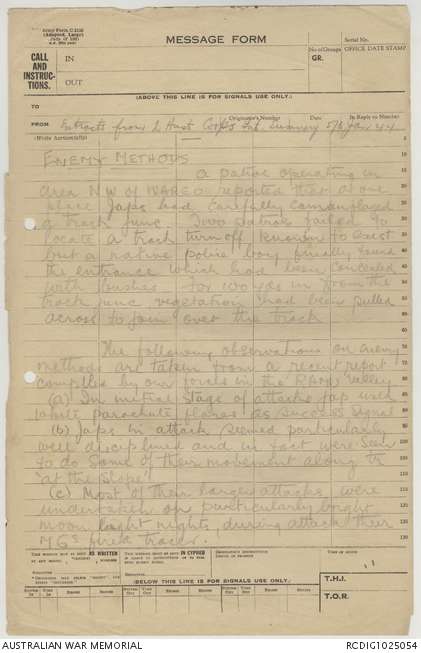 Army Form C 2128
MESSAGE FORM
Serial No.
CALL AND INSTRUCTIONS.
IN
OUT
No. of Groups
GR.
OFFICE DATE STAMP
(ABOVE THIS LINE IS FOR SIGNALS USE ONLY.)
TO
FROM Extracts from 2 Aust Corps Int summary 5th Jan 44
Originator's Number
Date
In Reply to Number
ENEMY METHODS
A patrol operating in
area NW of WAREO reported that at one
place Japs had carefully camouflaged
a track junc. Two patrols failed to
locate a track turnoff known to exist
but a native police boy finally found
the entrance which had been concealed
with bushes. For 100 yds in from the
track junc vegetation had been pulled
across to join over the track
The following observations on enemy
methods are taken from a recent report
compiled by our forces in the RAMU Valley
(a) In initial stage of attacks Jap used
white parachute flares as success signal
(b) Japs in attack seemed particularly
well disciplined and in fact were seen
to do some of their movement along tr
"at the slope".
(c) Most of their larger attacks were
undertaken on particularly bright
moon light nights, during attack their
MGs fired tracer.
THIS MESSAGE MAY BE SENT AS WRITTEN
IN CIPHER
(BELOW THIS LINE IS FOR SIGNALS USE ONLY.)
T.H.I.
T.O.R.
AUSTRALIAN WAR MEMORIAL
RCDIG1025054